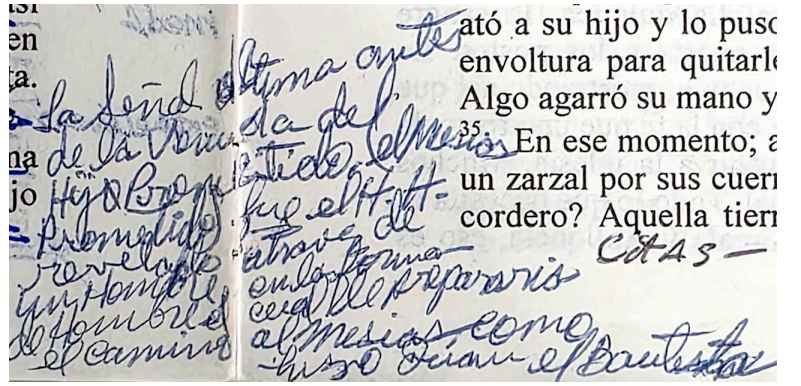 en
ta.
na
jo
ató a su hijo y lo puso
envoltura para quitarle
Algo agarró su mano y
35 En ese momento; a
un zarzal por sus cuern
cordero? Aquella tierr
Citas —
La Señal última antes
de la Venida del
Hijo Prometido, el Mesias
fue el H. H.
Promedido a trave de
revelado en la forma
un Hombre,
de Hombre el cual le prepararis
el camino al Mesias como
hizo Juan el Bautista